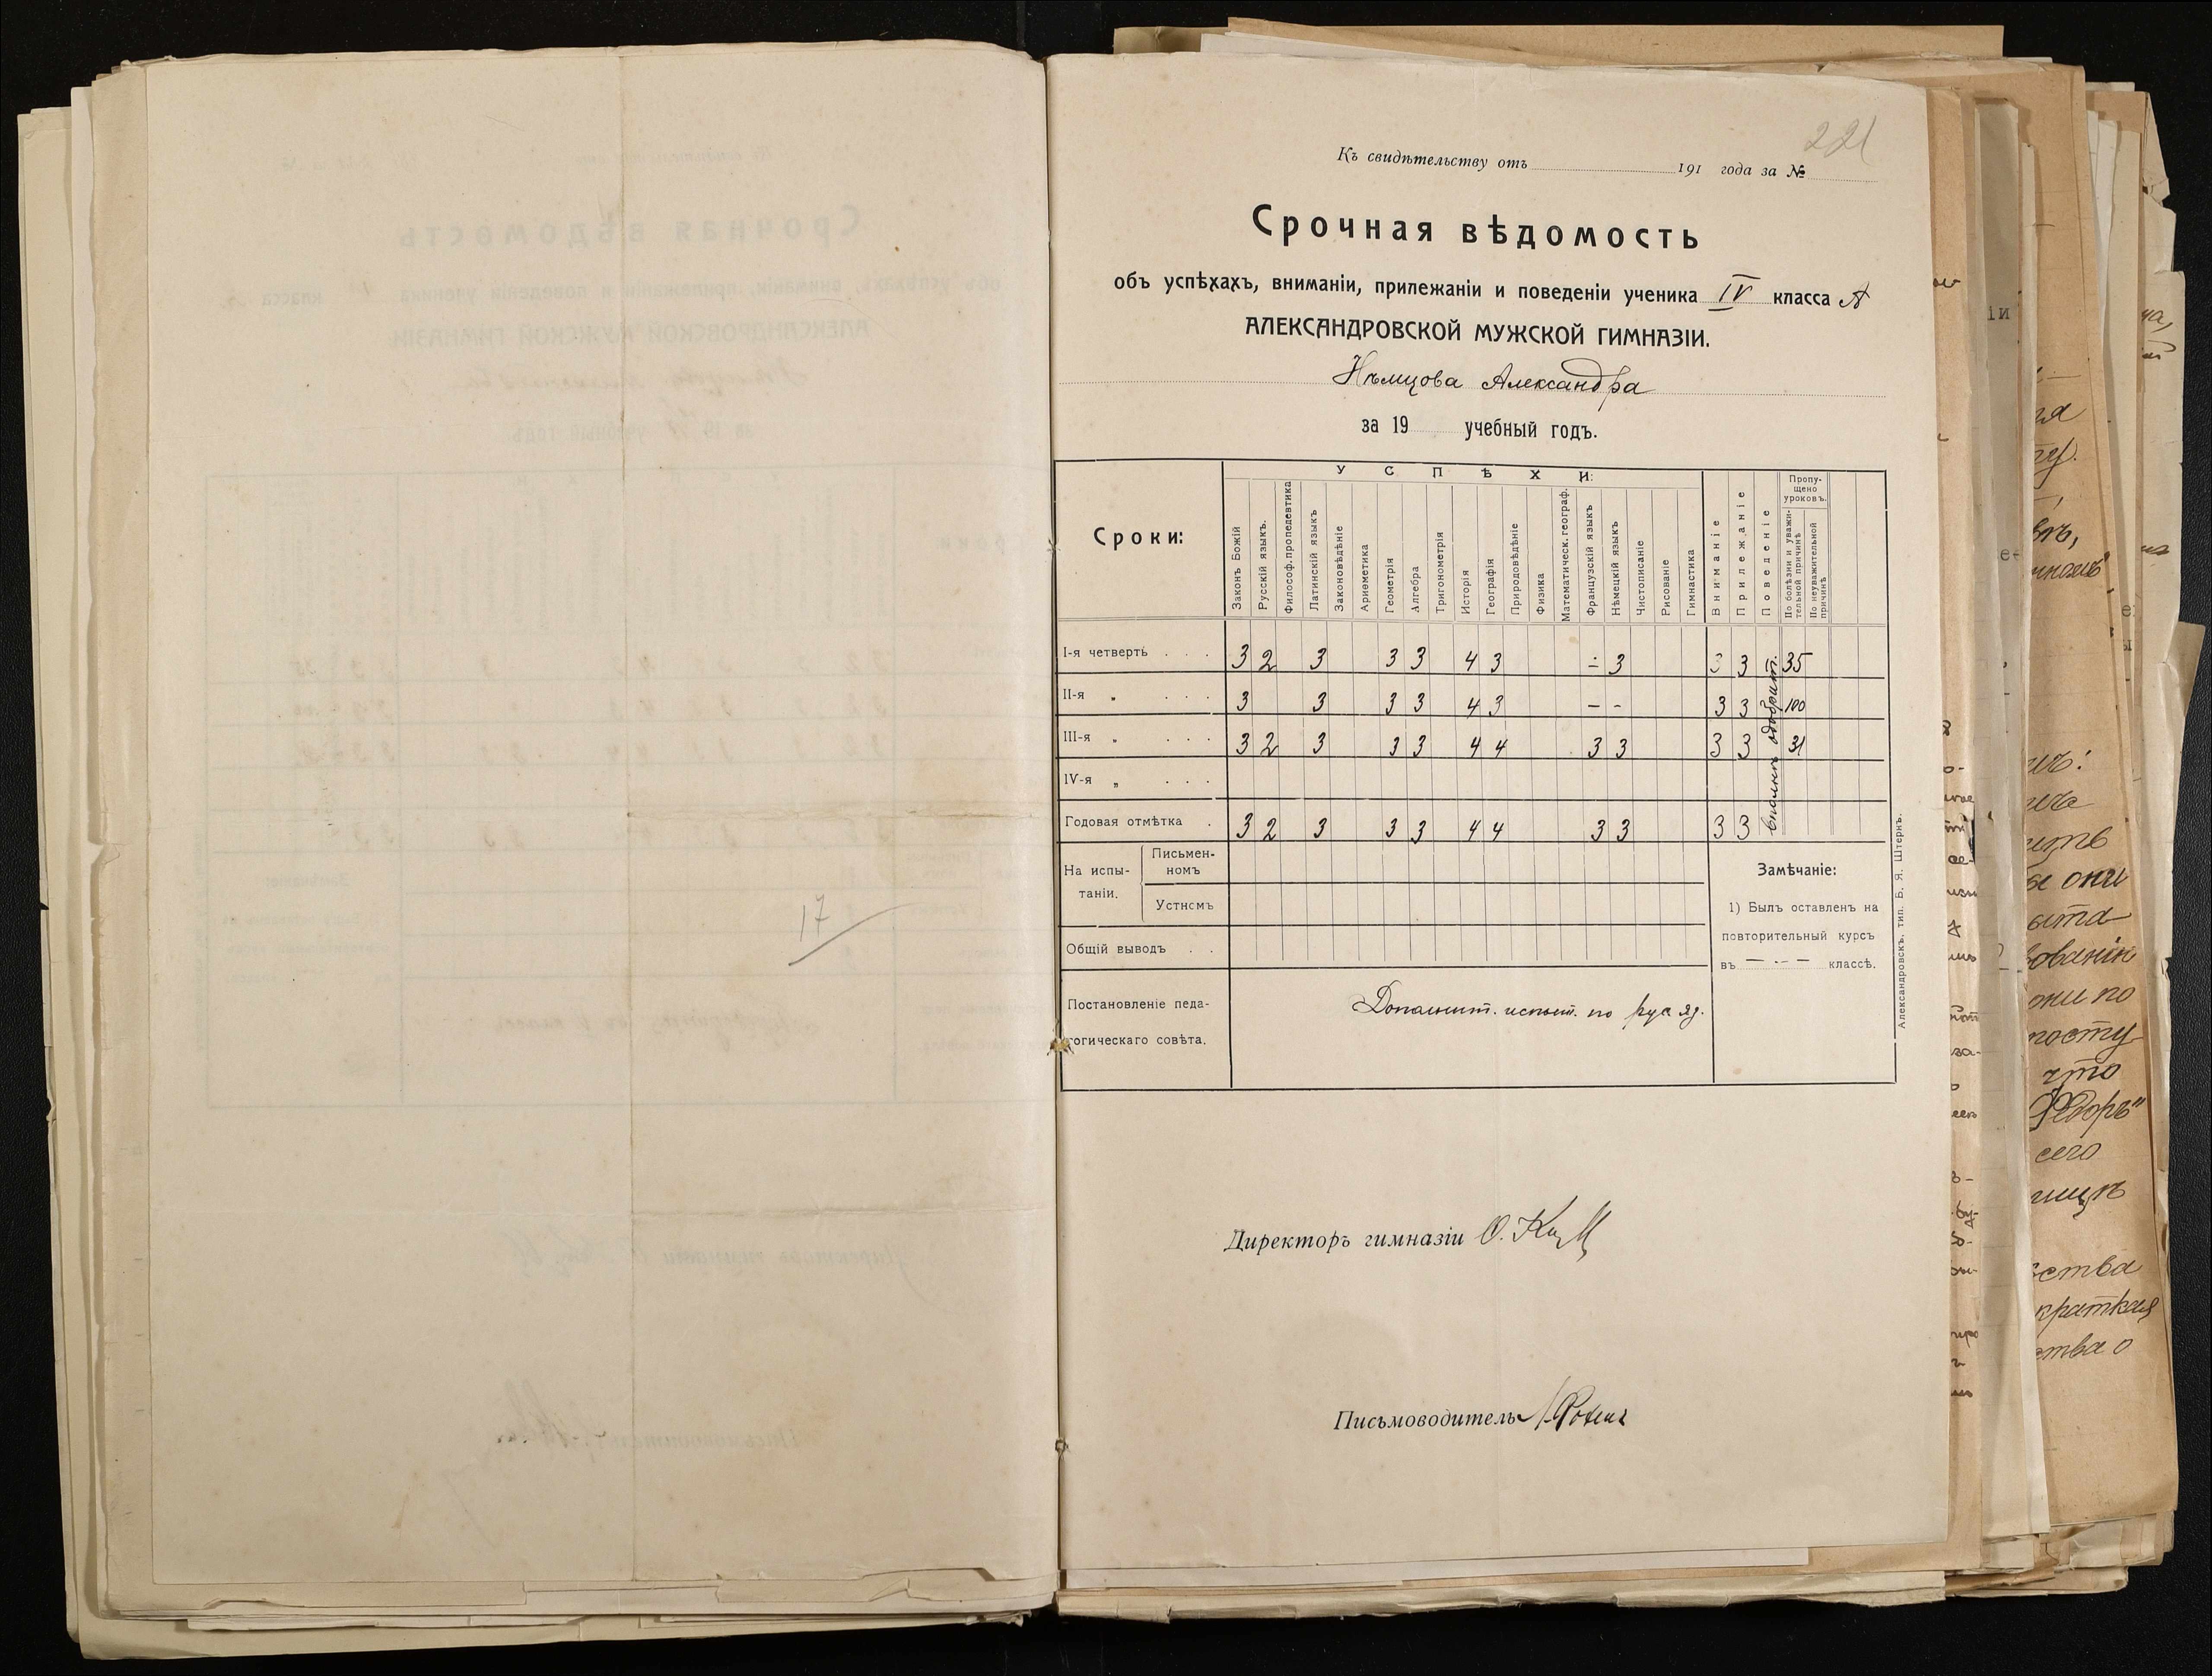 221
Къ свидѣтельству отъ 191 года за №
Срочная вѣдомость
объ успѣхахъ, вниманіи, прилежаніи и поведеніи ученика IV класса А
АЛЕКСАНДРОВСКОЙ МУЖСКОЙ ГИМНАЗІИ.
Нѣмцова Александра
за 19 учебный годъ.
Сроки:
УСПѢХИ:
Законъ Божій
Русскій языкъ.
Философ. пропедевтика
Латинскій языкъ
Законовѣдѣніе
Ариѳметика
Геометрія
Алгебра
Тригонометрія
Исторія
Географія
Природовѣдѣніе
Физика
Математическ. географ.
Французскій языкъ
Нѣмецкій языкъ
Чистописаніе
Рисованіе
Гимнастика
Вниманіе
Прилежаніе
Поведеніе
Пропу-
щено
уроковъ.
По болѣзни и уважи-
тельной причинѣ
По неуважительной
причинѣ
I-я четверть . . . 3 2 3 3 3 4 3 – 3 3 3 35
II-я „ . . . 3 3 3 3 4 3 – – 3 3 100
III-я „ . . . 3 2 3 3 3 4 4 3 3 3 3 31
IV-я „ . . .
Годовая отмѣтка . 3 2 3 3 3 4 4 3 3 3 3
вполнѣ одобрит.
На испы-
таніи.
Письмен-
номъ
Устномъ
Общій выводъ . .
Постановленіе педа-
гогическаго совѣта.
Дополнит. испыт. по рус яз.
Замѣчаніе:
1) Былъ оставленъ на
повторительный курсъ
въ — · — классѣ.
Александровскъ, тип. Б. Я. Штернъ.
Директоръ гимназіи
Письмоводитель
17